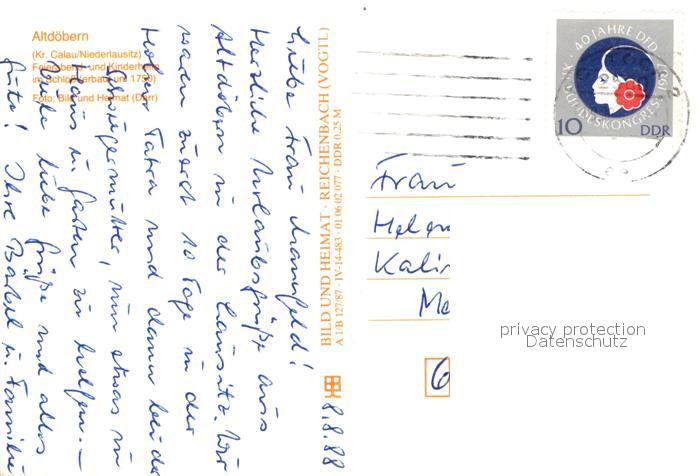 Altdöbern
(Kr. Calau/Niederlausitz)
Feierabend- und Kinderheim
im Schloß, erbaut um 1750
Foto: Bild und Heimat (Dörr)
8.8.88
Liebe Frau Mannfeld!
Herzliche Urlaubsgrüße aus
Altdöbern in der Lausitz. Wir
waren zuerst 10 Tage in der
Hohen Tatra und dann bei de
Schwiegermutter, um etwas in
Haus u. Garten zu helfen.—
liebe Grüße und alles
Gute! Ihre Bärbel u. Familie
BILD UND HEIMAT · REICHENBACH (VOGTL)
A 1/B 127/87 · IV-14-483 · 01 06 02 077 · DDR 0,25 M
40 JAHRE DFD 1987
XII. BUNDESKONGRESS
10 DDR
Frau
Helen
Kalin
Me
6
privacy protection
Datenschutz